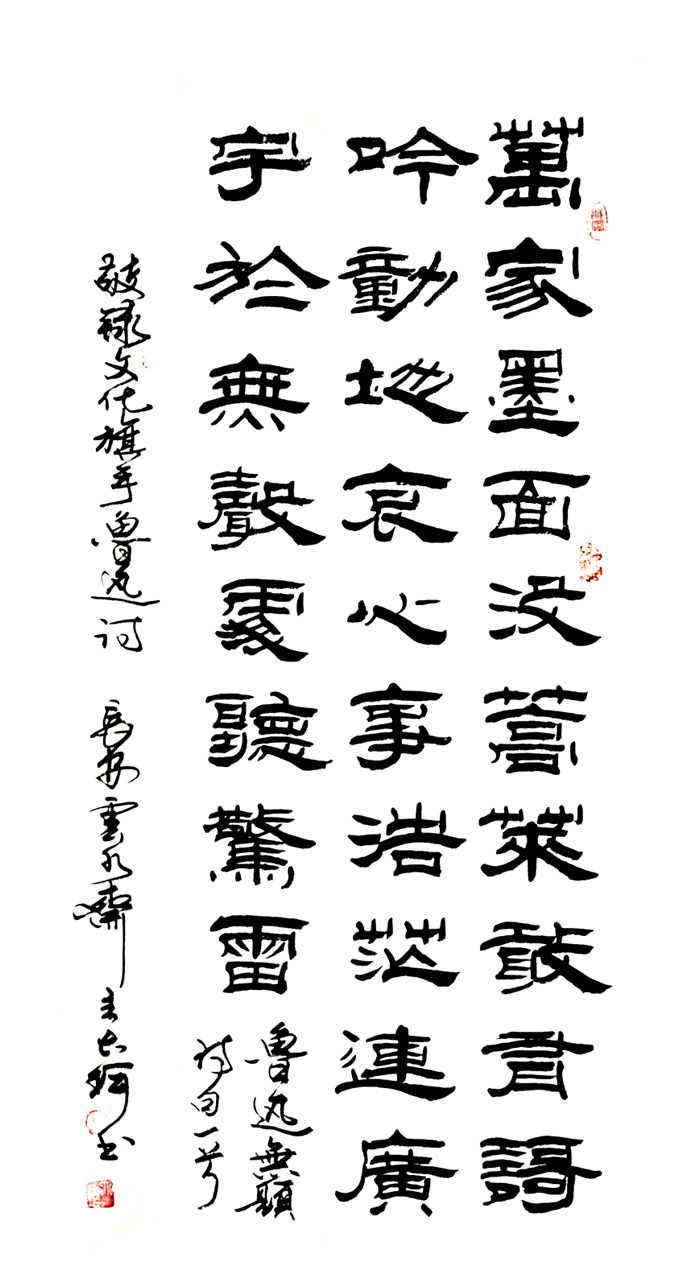 萬家墨面没蒿萊敢有謌
吟動地哀心事浩茫連廣
宇於無聲處聽驚雷
魯迅無題
詩一首
敬録文化旗手魯迅詩 長安雲水齋主书